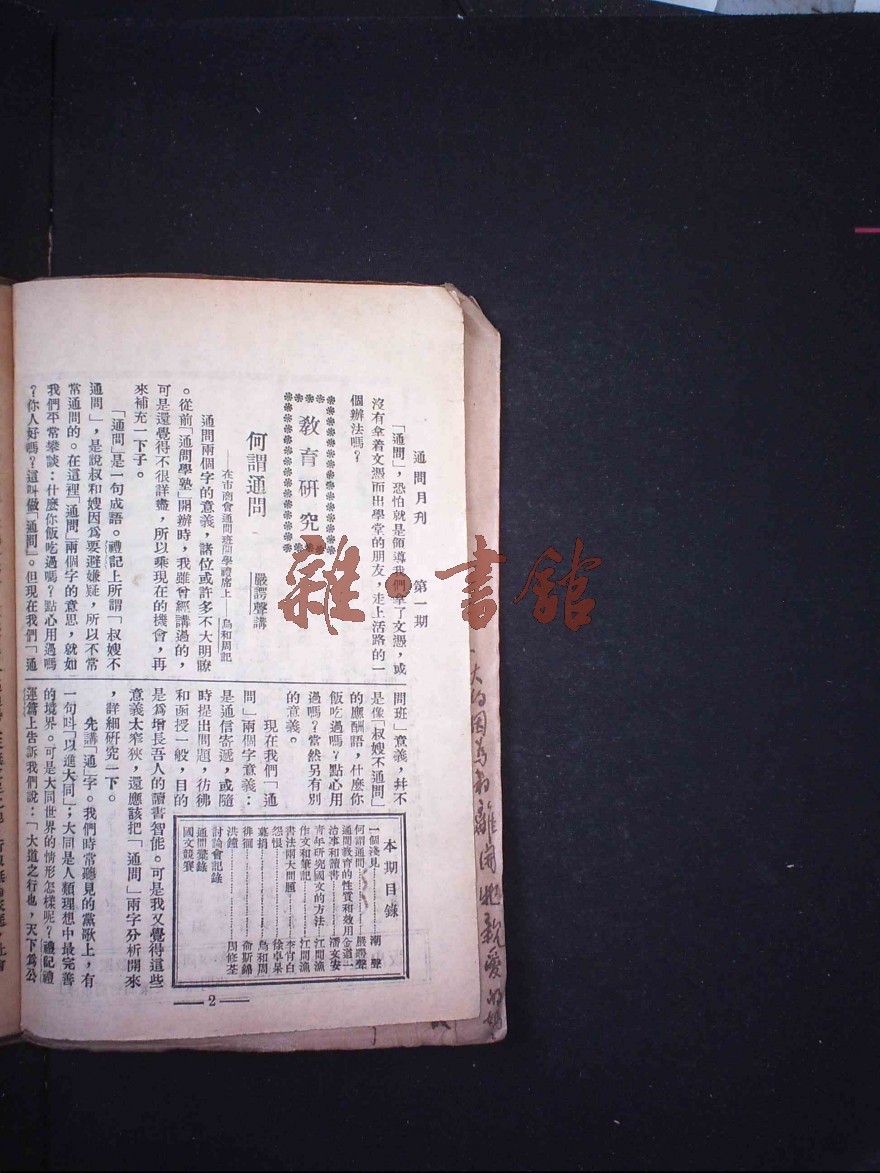 通問月刊　第一期
「通問」，恐怕就是領導我們拿了文憑，或
沒有拿着文憑而出學堂的朋友，走上活路的一
個辦法嗎？
教育研究
何謂通問
嚴諤聲講
——在市商會通問班開學禮席上——烏和周記
通問兩個字的意義，諸位或許多不大明瞭
。從前「通問學塾」開辦時，我雖曾經講過的，
可是還覺得不很詳盡，所以乘現在的機會，再
來補充一下子。
「通問」是一句成語。禮記上所謂「叔嫂不
通問」，是說叔和嫂因爲要避嫌疑，所以不常
常通問的。在這裡「通問」兩個字的意思，就如
我們平常攀談：什麼你飯吃過嗎？點心用過嗎
？你人好嗎？這叫做「通問」。但現在我們「通
問班」意義，幷不
是像「叔嫂不通問」
的應酬語，什麼你
飯吃過嗎？點心用
過嗎？當然另有別
的意義。
現在我們「通
問」兩個字意義：
是通信寄遞，或隨
時提出問題，彷彿
和函授一般，目的
是爲增長吾人的讀書智能。可是我又覺得這些
意義太窄狹，還應該把「通問」兩字分析開來
，詳細研究一下。
先講「通」字。我們時常聽見的黨歌上，有
一句叫「以進大同」；大同是人類理想中最完善
的境界。可是大同世界的情形怎樣呢？禮記禮
運篇上告訴我們說：「大道之行也，天下爲公
本期目錄
一個淺見……潮聲
何謂通問……嚴諤聲
通問教育的性質和效用 金道一
治事和讀書……潘文安
青年研究國文的方法…江問漁
作文和筆記……江問漁
書法兩大問題……李肖白
怨恨……徐卓呆
墓捐……烏和周
徘徊……俞斯錦
洪鐘……周修荃
討論會記錄
通問彙錄
國文競賽
—2—
雜·書館
大約因為
離開
親愛的